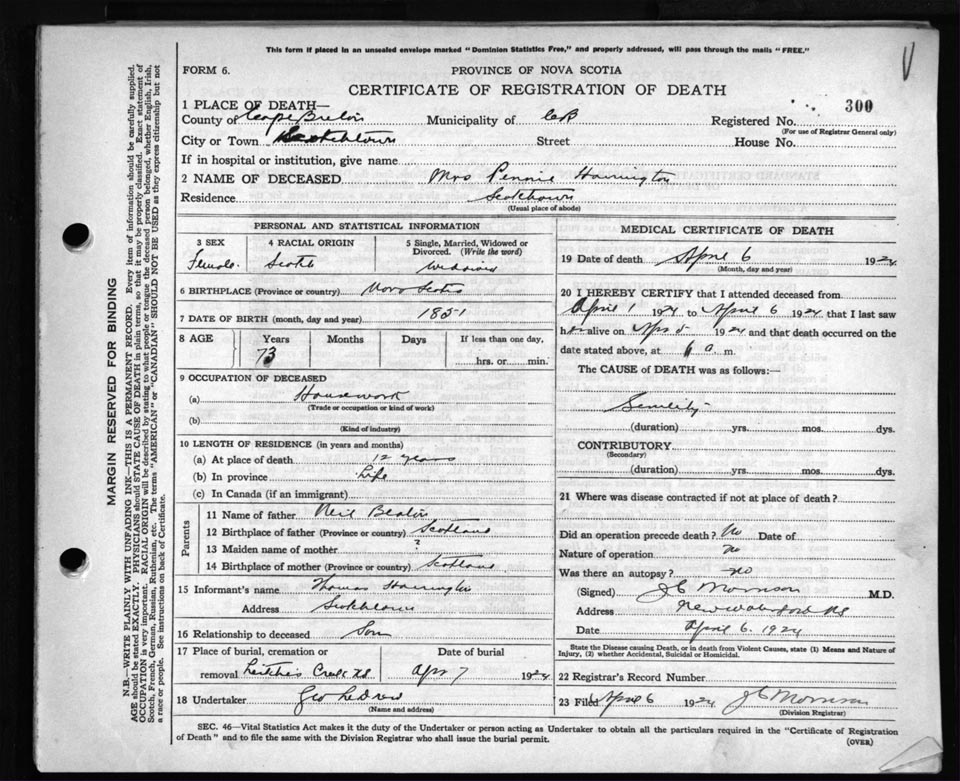 This form if placed in an unsealed envelope marked "Dominion Statistics Free," and properly addressed, will pass through the mails "FREE."
FORM 6.
PROVINCE OF NOVA SCOTIA
CERTIFICATE OF REGISTRATION OF DEATH
300
1 PLACE OF DEATH—
County of Cape Breton Municipality of CB Registered No.
(For use of Registrar General only)
City or Town Scotchtown Street House No.
If in hospital or institution, give name
2 NAME OF DECEASED Mrs Pennie Harrington
Residence Scotchtown
(Usual place of abode)
PERSONAL AND STATISTICAL INFORMATION
3 SEX 4 RACIAL ORIGIN 5 Single, Married, Widowed or Divorced. (Write the word)
Female Scotch widowed
6 BIRTHPLACE (Province or country) Nova Scotia
7 DATE OF BIRTH (month, day and year) 1851
8 AGE Years Months Days If less than one day,
73 hrs. or min.
9 OCCUPATION OF DECEASED
(a) Housework
(Trade or occupation or kind of work)
(b)
(Kind of industry)
10 LENGTH OF RESIDENCE (in years and months)
(a) At place of death 12 years
(b) In province Life
(c) In Canada (if an immigrant)
Parents
11 Name of father Neil Beaton
12 Birthplace of father (Province or country) Scotland
13 Maiden name of mother ?
14 Birthplace of mother (Province or country) Scotland
15 Informant's name Thomas Harrington
Address Scotchtown
16 Relationship to deceased Son
17 Place of burial, cremation or Date of burial
removal Apr 7 1924
18 Undertaker Geo
(Name and address)
MEDICAL CERTIFICATE OF DEATH
19 Date of death April 6 1924
(Month, day and year)
20 I HEREBY CERTIFY that I attended deceased from
April 1 1924 to April 6 1924 that I last saw
her alive on Apr 5 1924 and that death occurred on the
date stated above, at a m.
The CAUSE of DEATH was as follows:—
Senility
(duration) yrs. mos. dys.
CONTRIBUTORY
(Secondary)
(duration) yrs. mos. dys.
21 Where was disease contracted if not at place of death?
Did an operation precede death? No Date of
Nature of operation no
Was there an autopsy? no
(Signed) J C Morrison M.D.
Address New Waterford NS
Date April 6. 1924
State the Disease causing Death, or in death from Violent Causes, state (1) Means and Nature of
Injury, (2) whether Accidental, Suicidal or Homicidal.
22 Registrar's Record Number
23 Filed April 6 1924 J C Morrison
(Division Registrar)
SEC. 46—Vital Statistics Act makes it the duty of the Undertaker or person acting as Undertaker to obtain all the particulars required in the "Certificate of Registration
of Death" and to file the same with the Division Registrar who shall issue the burial permit.
(OVER)
MARGIN RESERVED FOR BINDING
N.B.—WRITE PLAINLY WITH UNFADING INK—THIS IS A PERMANENT RECORD. Every item of information should be carefully supplied.
AGE should be stated EXACTLY. PHYSICIANS should STATE CAUSE OF DEATH in plain terms, so that it may be properly classified. Exact statement of
OCCUPATION is very important. RACIAL ORIGIN will be described by stating to what people or tongue the deceased person belonged, whether English, Irish,
Scotch, French, German, Russian, Ruthenian, etc. The terms "AMERICAN" or "CANADIAN" SHOULD NOT BE USED as they express citizenship but not
a race or people. See instructions on back of Certificate.